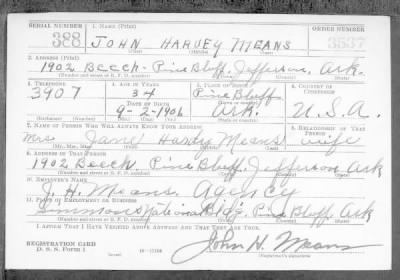 SERIAL NUMBER 1. NAME (Print) ORDER NUMBER
388 JOHN HARVEY MEANS 3537
(First) (Middle) (Last)
2. ADDRESS (Print)
1902 Beech - Pine Bluff, Jefferson, Ark.
(Number and street or R. F. D. number) (Town) (County) (State)
3. TELEPHONE 4. AGE IN YEARS 5. PLACE OF BIRTH 6. COUNTRY OF CITIZENSHIP
3907 34 Pine Bluff
DATE OF BIRTH
9-2-1906 Ark. U.S.A.
(Mo.) (Day) (Yr.)
7. NAME OF PERSON WHO WILL ALWAYS KNOW YOUR ADDRESS 8. RELATIONSHIP OF THAT PERSON
Mrs. Jane Hardy Means wife
(Mr., Mrs., Miss) (First) (Middle) (Last)
9. ADDRESS OF THAT PERSON
1902 Beech Pine Bluff Jefferson Ark
(Number and street or R. F. D. number) (Town) (County) (State)
10. EMPLOYER'S NAME
J. H. Means Agency
11. PLACE OF EMPLOYMENT OR BUSINESS
Simmons National Bldg. Pine Bluff, Ark
I AFFIRM THAT I HAVE VERIFIED ABOVE ANSWERS AND THAT THEY ARE TRUE.
REGISTRATION CARD
D. S. S. Form 1 John H. Means